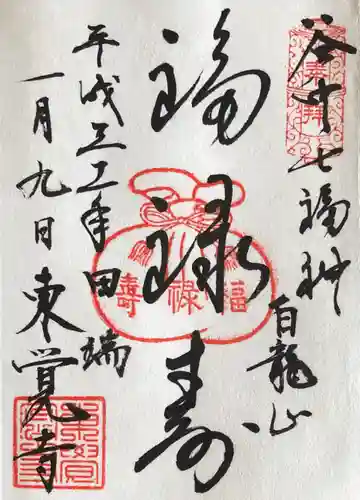 谷中七福神
白龍山
福禄寿
平成三二年
一月九日
田端
東覚寺
福禄壽